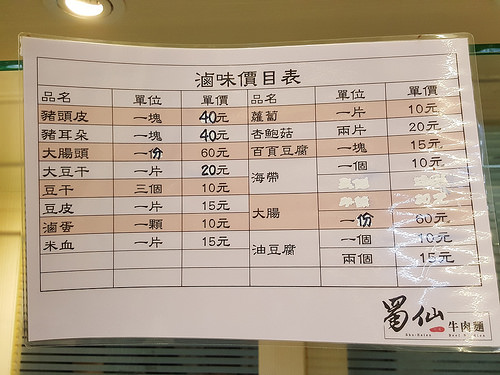 滷味價目表
品名 單位 單價 品名 單位 單價
豬頭皮 一塊 40元 蘿蔔 一片 10元
豬耳朵 一塊 40元 杏鮑菇 兩片 20元
大腸頭 一份 60元 百頁豆腐 一塊 15元
大豆干 一片 20元 海帶 一個 10元
豆干 三個 10元
豆皮 一片 15元 大腸
滷蛋 一顆 10元 一份 60元
米血 一片 15元 油豆腐 一個 10元
兩個 15元
蜀仙 牛肉麵